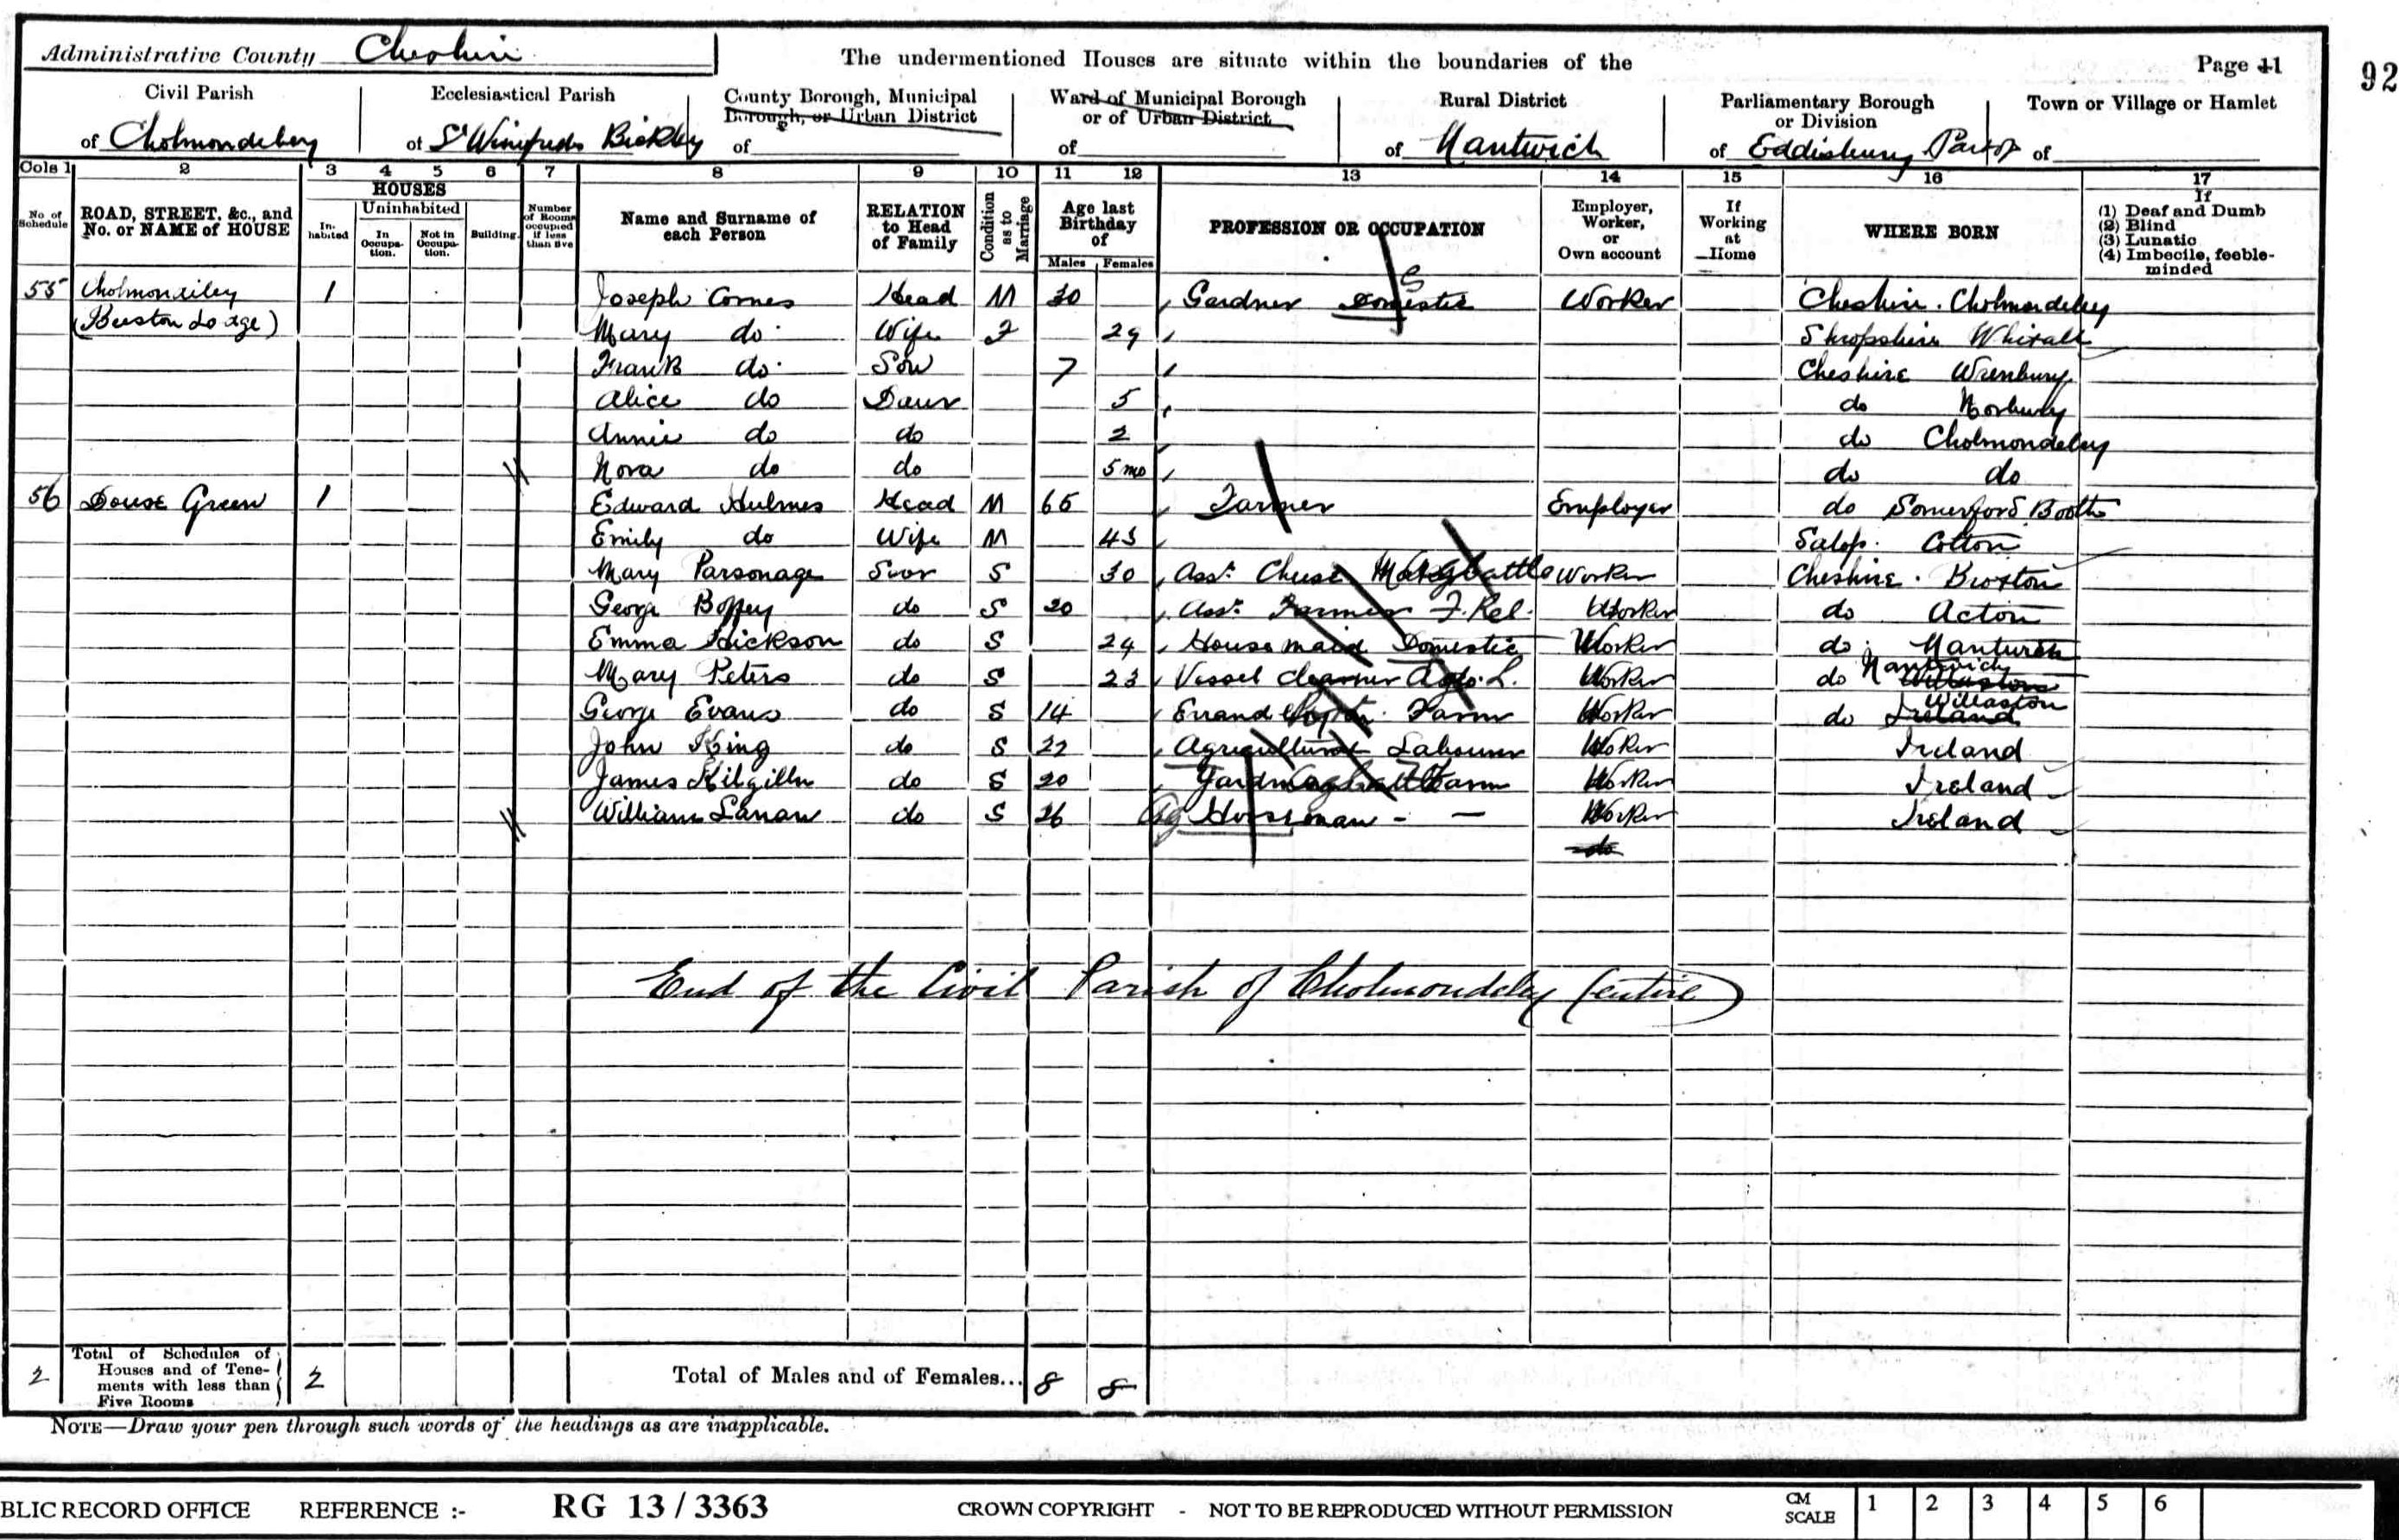 Administrative County Cheshire
The undermentioned Houses are situate within the boundaries of the
Page 11
92
Civil Parish
of Cholmondeley
Ecclesiastical Parish
of St Winifreds Bickley
County Borough, Municipal Borough, or Urban District
of
Ward of Municipal Borough or of Urban District
of
Rural District
of Nantwich
Parliamentary Borough or Division
of Eddisbury Part of
Town or Village or Hamlet
of
Cols 1 2 3 4 5 6 7 8 9 10 11 12 13 14 15 16 17
No of Schedule
ROAD, STREET, &c., and No. or NAME of HOUSE
HOUSES
In-habited
Uninhabited
In Occupa-tion.
Not in Occupa-tion.
Building.
Number of Rooms occupied if less than five
Name and Surname of each Person
RELATION to Head of Family
Condition as to Marriage
Age last Birthday of
Males Females
PROFESSION OR OCCUPATION
Employer, Worker, or Own account
If Working at Home
WHERE BORN
If
(1) Deaf and Dumb
(2) Blind
(3) Lunatic
(4) Imbecile, feeble-minded
55 Cholmondeley 1 Joseph Comes Head M 30 Gardner Domestic Worker Cheshire. Cholmondeley
(Beeston Lodge) Mary do Wife F 29 Shropshire Whixall
Frank do Son 7 Cheshire Wrenbury
Alice do Daur 5 do Norbury
Annie do do 2 do Cholmondeley
Nora do do 5 mo do do
56 Douse Green 1 Edward Hulmes Head M 65 Farmer Employer do Somerford Booths
Emily do Wife M 43 Salop. Cotton
Mary Parsonage Svor S 30 Asst. Cheese Worker Cheshire. Broxton
George Boffey do S 20 Asst. Farmer F. Rel. Worker do Acton
Emma Hickson do S 24 House maid Domestic Worker do Nantwich
Mary Peters do S 23 Vessel cleaner Worker do Nantwich
George Evans do S 14 Errand Farm Worker do Ireland Willaston
John King do S 22 Agricultural Labourer Worker Ireland
James Kilgilln do S 20 Farm Worker Ireland
William Lanan do S 26 Ag Horseman - — Worker Ireland
do
End of the Civil Parish of Cholmondeley (entire)
2 Total of Schedules of Houses and of Tene-ments with less than Five Rooms 2
Total of Males and of Females... 8 8
NOTE—Draw your pen through such words of the headings as are inapplicable.
BLIC RECORD OFFICE REFERENCE :- RG 13 / 3363 CROWN COPYRIGHT - NOT TO BE REPRODUCED WITHOUT PERMISSION CM SCALE 1 2 3 4 5 6